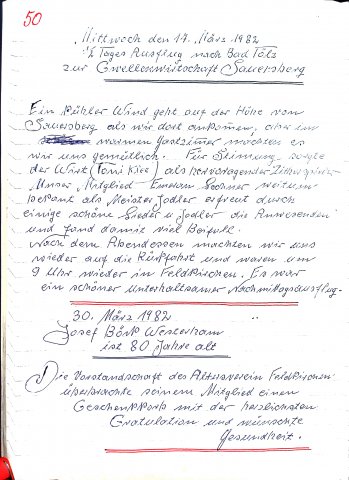 50
Mittwoch den 17. März 1982
½ Tages Ausflug nach Bad Tölz
zur Gwellenwirtschaft Sauersberg
Ein kühler Wind geht auf der Höhe von
Sauersberg als wir dort ankommen, aber im
warmen Gastzimer machten es
wir uns gemütlich. Für Stimung sorgte
der Wirt (Toni Kiee) als hervorragender Zitherspieler
Unser Mitglied Emeram Sochner weitum
bekant als Meister Jodler erfreut durch
einige schöne Lieder u Jodler die Anwesenden
und fand damit viel Beifall.
Nach dem Abendessen machten wir uns
wieder auf die Rückfahrt und waren um
9 Uhr wieder in Feldkirchen. Es war
ein schöner unterhaltsamer Nachmittagsausflug-
30. März 1982
Josef Börk Westerham
ist 80 Jahre alt
Die Vorstandschaft des Altersverein Feldkirchen
überbrachte seinem Mitglied einen
Geschenkkorb mit der herzlichsten
Gratulation und wünschte
Gesundheit.